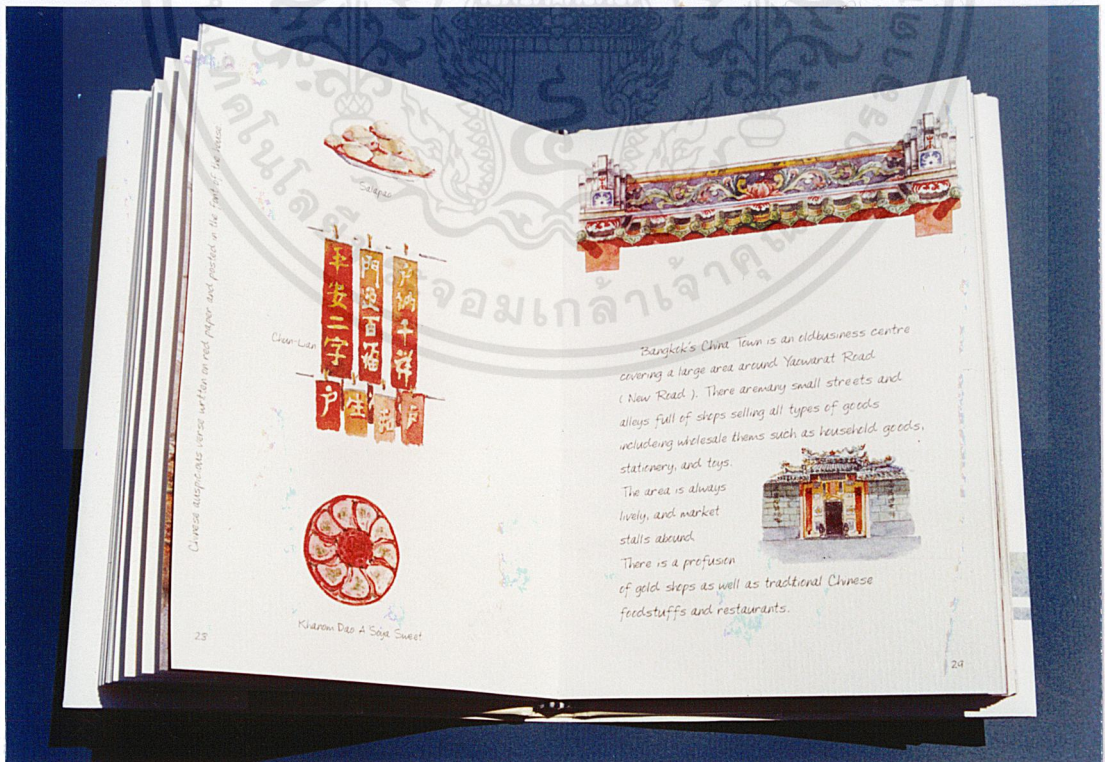 Chinese auspicious verse written on red paper and posted in the front of the house
Salapao
Chun-Lian
平安二字
門迎百福
戶納千祥
戶
生
Khanom Dao A Soya Sweet
28
Bangkok's China Town is an oldbusiness centre
covering a large area around Yaowarat Road
( New Road ). There aremany small streets and
alleys full of shops selling all types of goods
includeing wholesale thems such as household goods,
stationery, and toys.
The area is always
lively, and market
stalls abound
There is a profusion
of gold shops as well as tradtional Chinese
foodstuffs and restaurants.
29
จอมเกล้าเจ้าคุณ